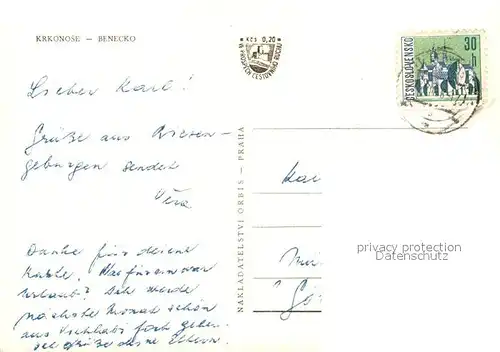 KRKONOŠE – BENECKO
Kčs 0,20
VE PROSPĚCH CESTOVNÍHO RUCHU
ČESKOSLOVENSKO
30 h
Lieber Karl!
Grüße aus Riesen-
geburgen sendet
Věra
Danke für deine
Karte. Was für ein war
Urlaub? Ich werde
nächste Monat schön
aus fort gehen.
Ich grüße deine Eltern.
NAKLADATELSTVÍ ORBIS – PRAHA
privacy protection
Datenschutz